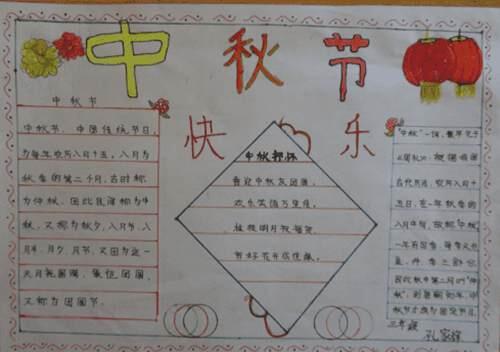 中秋节
快乐
中秋节
中秋节，中国传统节日，
为每年农历八月十五，八月为
秋季的第二个月，古时称
为仲秋，因此民间称为中
秋，又称为秋夕，八月节，八
月半，月夕，月节，又因为这一
天月亮圆满，象征团圆，
又称为团圆节。
中秋抒怀
喜迎中秋友团圆，
欢乐笑语万里传，
月好花
“中秋”一词，最早见于
《周礼》。根据我国
古代历法，农历八月十
五日，在一年秋季的
八月中旬，故称“中秋”
一年有四季，每季又分
孟、仲、季三部分，
因此秋中第二月叫“仲
秋”，到唐朝初年，中
秋节才成为固定节日。
三年级